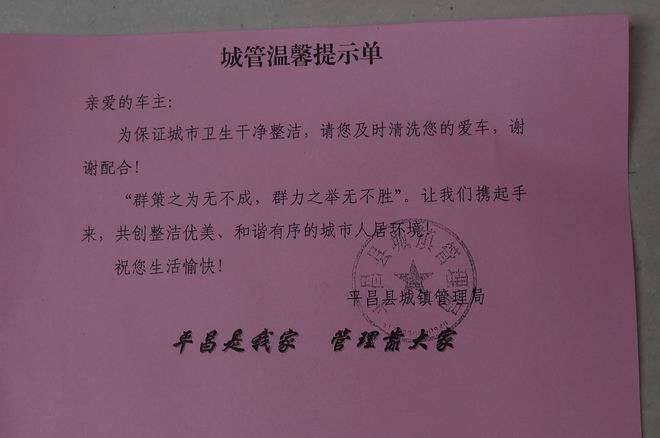 城管温馨提示单
亲爱的车主:
为保证城市卫生干净整洁，请您及时清洗您的爱车，谢
谢配合!
“群策之为无不成，群力之举无不胜”。让我们携起手
来，共创整洁优美、和谐有序的城市人居环境!
祝您生活愉快!
平昌县城镇管理局
平昌县城镇管理局
平昌是我家 管理靠大家